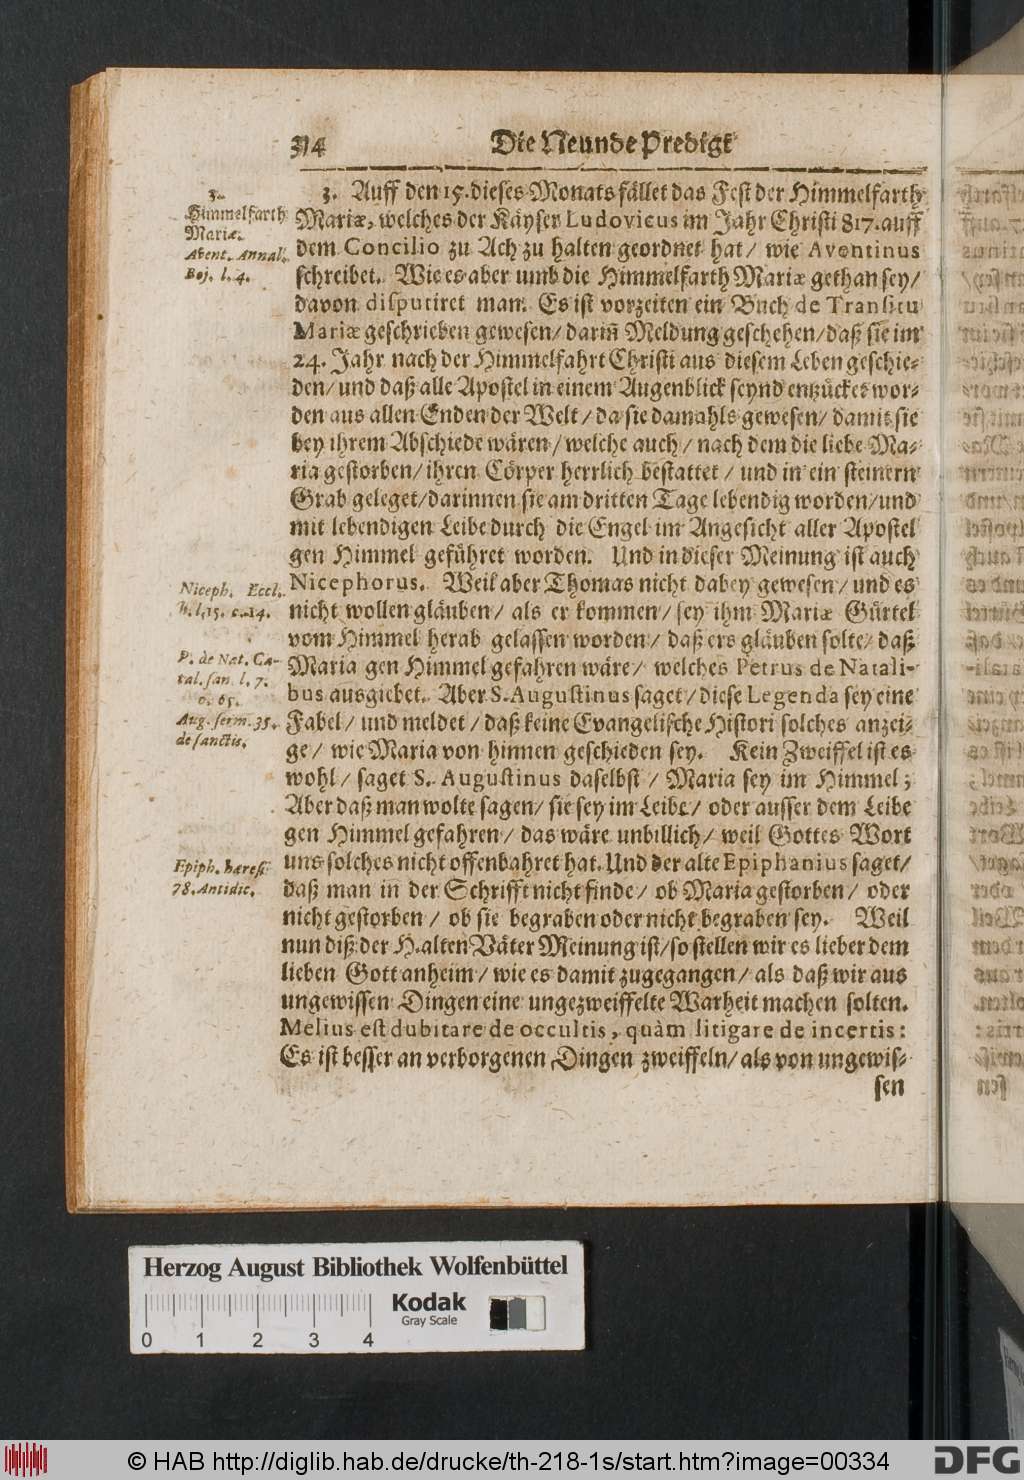 314 Die Neunde Predigt
3.
Himmelfarth
Mariæ.
Avent. Annal.
Boj. l. 4.
3. Auff den 15. dieses Monats fället das Fest der Himmelfarth
Mariæ, welches der Käyser Ludovicus im Jahr Christi 817. auff
dem Concilio zu Ach zu halten geordnet hat / wie Aventinus
schreibet. Wie es aber umb die Himmelfarth Mariæ gethan sey /
davon disputiret man. Es ist vorzeiten ein Buch de Transitu
Mariæ geschrieben gewesen / dariñ Meldung geschehen / daß sie im
24. Jahr nach der Himmelfahrt Christi aus diesem Leben geschie-
den / und daß alle Apostel in einem Augenblick seynd entzücket wor-
den aus allen Enden der Welt / da sie damahls gewesen / damit sie
bey ihrem Abschiede wären / welche auch / nach dem die liebe Ma-
ria gestorben / ihren Cörper herrlich bestattet / und in ein steinern
Grab geleget / darinnen sie am dritten Tage lebendig worden / und
mit lebendigen Leibe durch die Engel im Angesicht aller Apostel
gen Himmel geführet worden. Und in dieser Meinung ist auch
Nicephorus. Weil aber Thomas nicht dabey gewesen / und es
nicht wollen gläuben / als er kommen / sey ihm Mariæ Gürtel
vom Himmel herab gelassen worden / daß ers gläuben solte / daß
Maria gen Himmel gefahren wäre / welches Petrus de Natali-
bus ausgiebet. Aber S. Augustinus saget / diese Legenda sey eine
Fabel / und meldet / daß keine Evangelische Histori solches anzei-
ge / wie Maria von hinnen geschieden sey. Kein Zweiffel ist es
wohl / saget S. Augustinus daselbst / Maria sey im Himmel;
Aber daß man wolte sagen / sie sey im Leibe / oder ausser dem Leibe
gen Himmel gefahren / das wäre unbillich / weil Gottes Wort
uns solches nicht offenbahret hat. Und der alte Epiphanius saget /
daß man in der Schrifft nicht finde / ob Maria gestorben / oder
nicht gestorben / ob sie begraben oder nicht begraben sey. Weil
nun diß der H. alten Väter Meinung ist / so stellen wir es lieber dem
lieben Gott anheim / wie es damit zugegangen / als daß wir aus
ungewissen Dingen eine ungezweiffelte Warheit machen solten.
Melius est dubitare de occultis, quàm litigare de incertis:
Es ist besser an verborgenen Dingen zweiffeln / als von ungewis-
sen
Niceph. Eccl.
h. l. 15. c. 14.
P. de Nat. Ca-
tal. san. l. 7.
c. 65.
Aug. serm. 35.
de sanctis.
Epiph. hæres.
78. Antidic.
Herzog August Bibliothek Wolfenbüttel
Kodak
Gray Scale
0 1 2 3 4
© HAB http://diglib.hab.de/drucke/th-218-1s/start.htm?image=00334
DFG